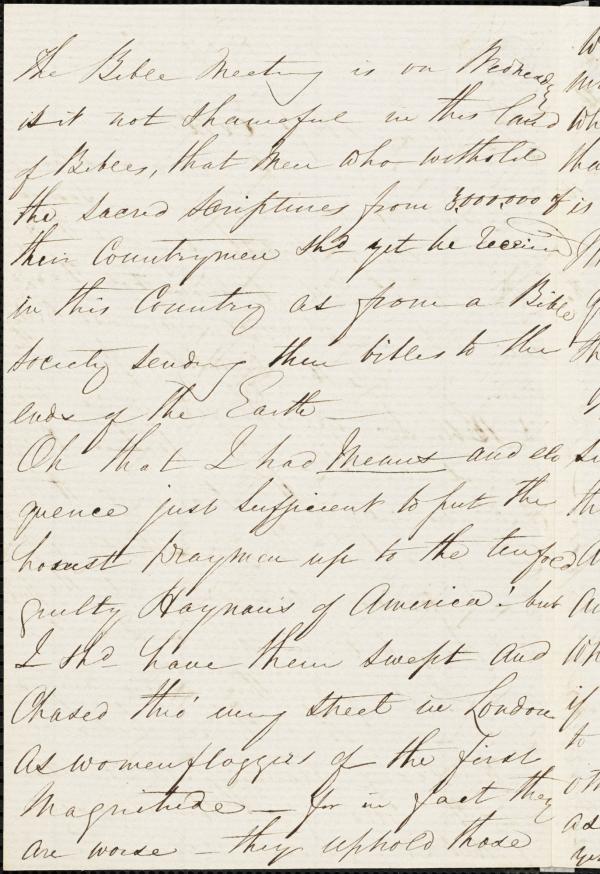 The Bible Meeting is on Wednesdy
is it not shameful in this land
of Bibles, that Men who withold
the sacred scriptures from 3,000,000 of
their Countrymen shd yet be receivd
in this Country as from a Bible
society sending their bibles to the
ends of the Earth —
Oh that I had Means and elo
quence just sufficient to put the
honest Drayman up to the tenfold
guilty Haynaus of America! but
I shd have them swept and
Chased thro' every street in London
as womenfloggers of the first
Magnitude — for in fact they
are worse — they uphold those